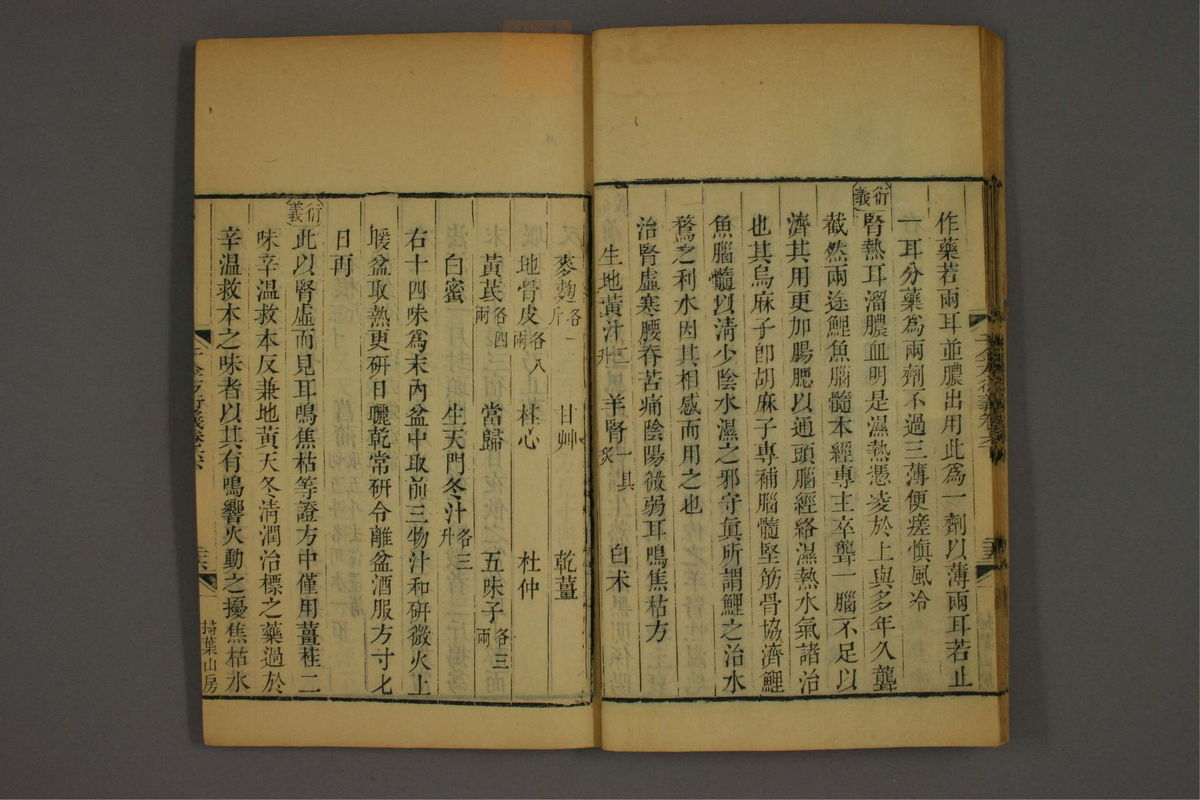 作藥若兩耳並膿出用此爲一劑以薄兩耳若止
一耳分藥爲兩劑不過三薄便瘥慎風冷
衍義
腎熱耳溜膿血明是濕熱憑凌於上與多年久聾
截然兩途鯉魚腦髓本經專主卒聾一腦不足以
濟其用更加腸腮以通頭腦經絡濕熱水氣諸治
也其烏麻子卽胡麻子專補腦髓堅筋骨協濟鯉
魚腦髓以清少陰水濕之邪守眞所謂鯉之治水
鶩之利水因其相感而用之也
治腎虛寒腰脊苦痛陰陽微弱耳鳴焦枯方
生地黃汁二升 羊腎一具炙 白朮
麥麴各一斤 甘艸 乾薑
地骨皮各八兩 桂心 杜仲
黃茋各四兩 當歸 五味子各三兩
白蜜 生天門冬汁各三升
右十四味爲末內盆中取前三物汁和研微火上
暖盆取熱更研日曬乾常研令離盆酒服方寸匕
日再
衍義
此以腎虛而見耳鳴焦枯等證方中僅用薑桂二
味辛温救本反兼地黃天冬清潤治標之藥過於
辛温救本之味者以其有鳴響火動之擾焦枯水
掃葉山房